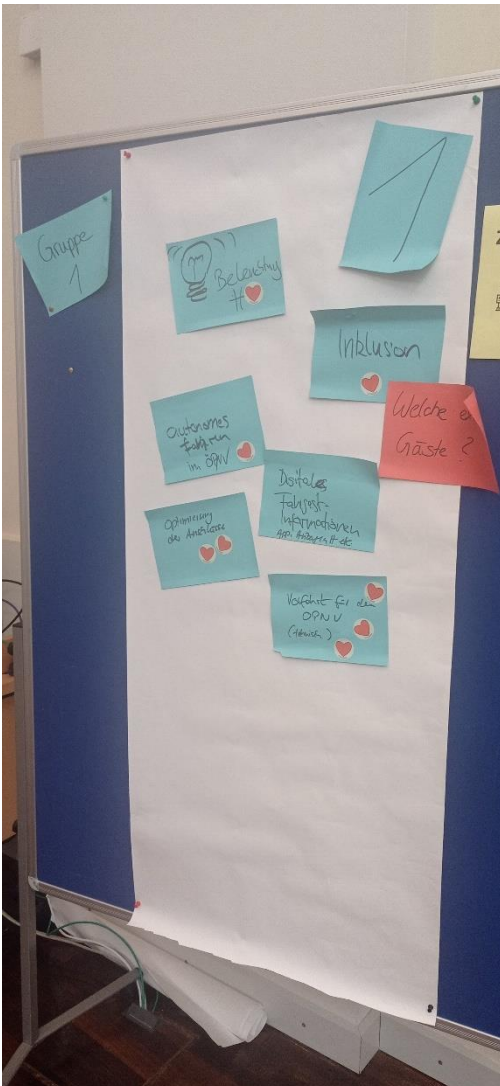 Gruppe
1
1
Beleuchtung
Inklusion
Welche
Gäste?
autonomes
fahren
im ÖPNV
Digitales
Fahrgast-
Informationen
App,
Optimierung
der Anschlüsse
Vorfahrt für den
ÖPNV